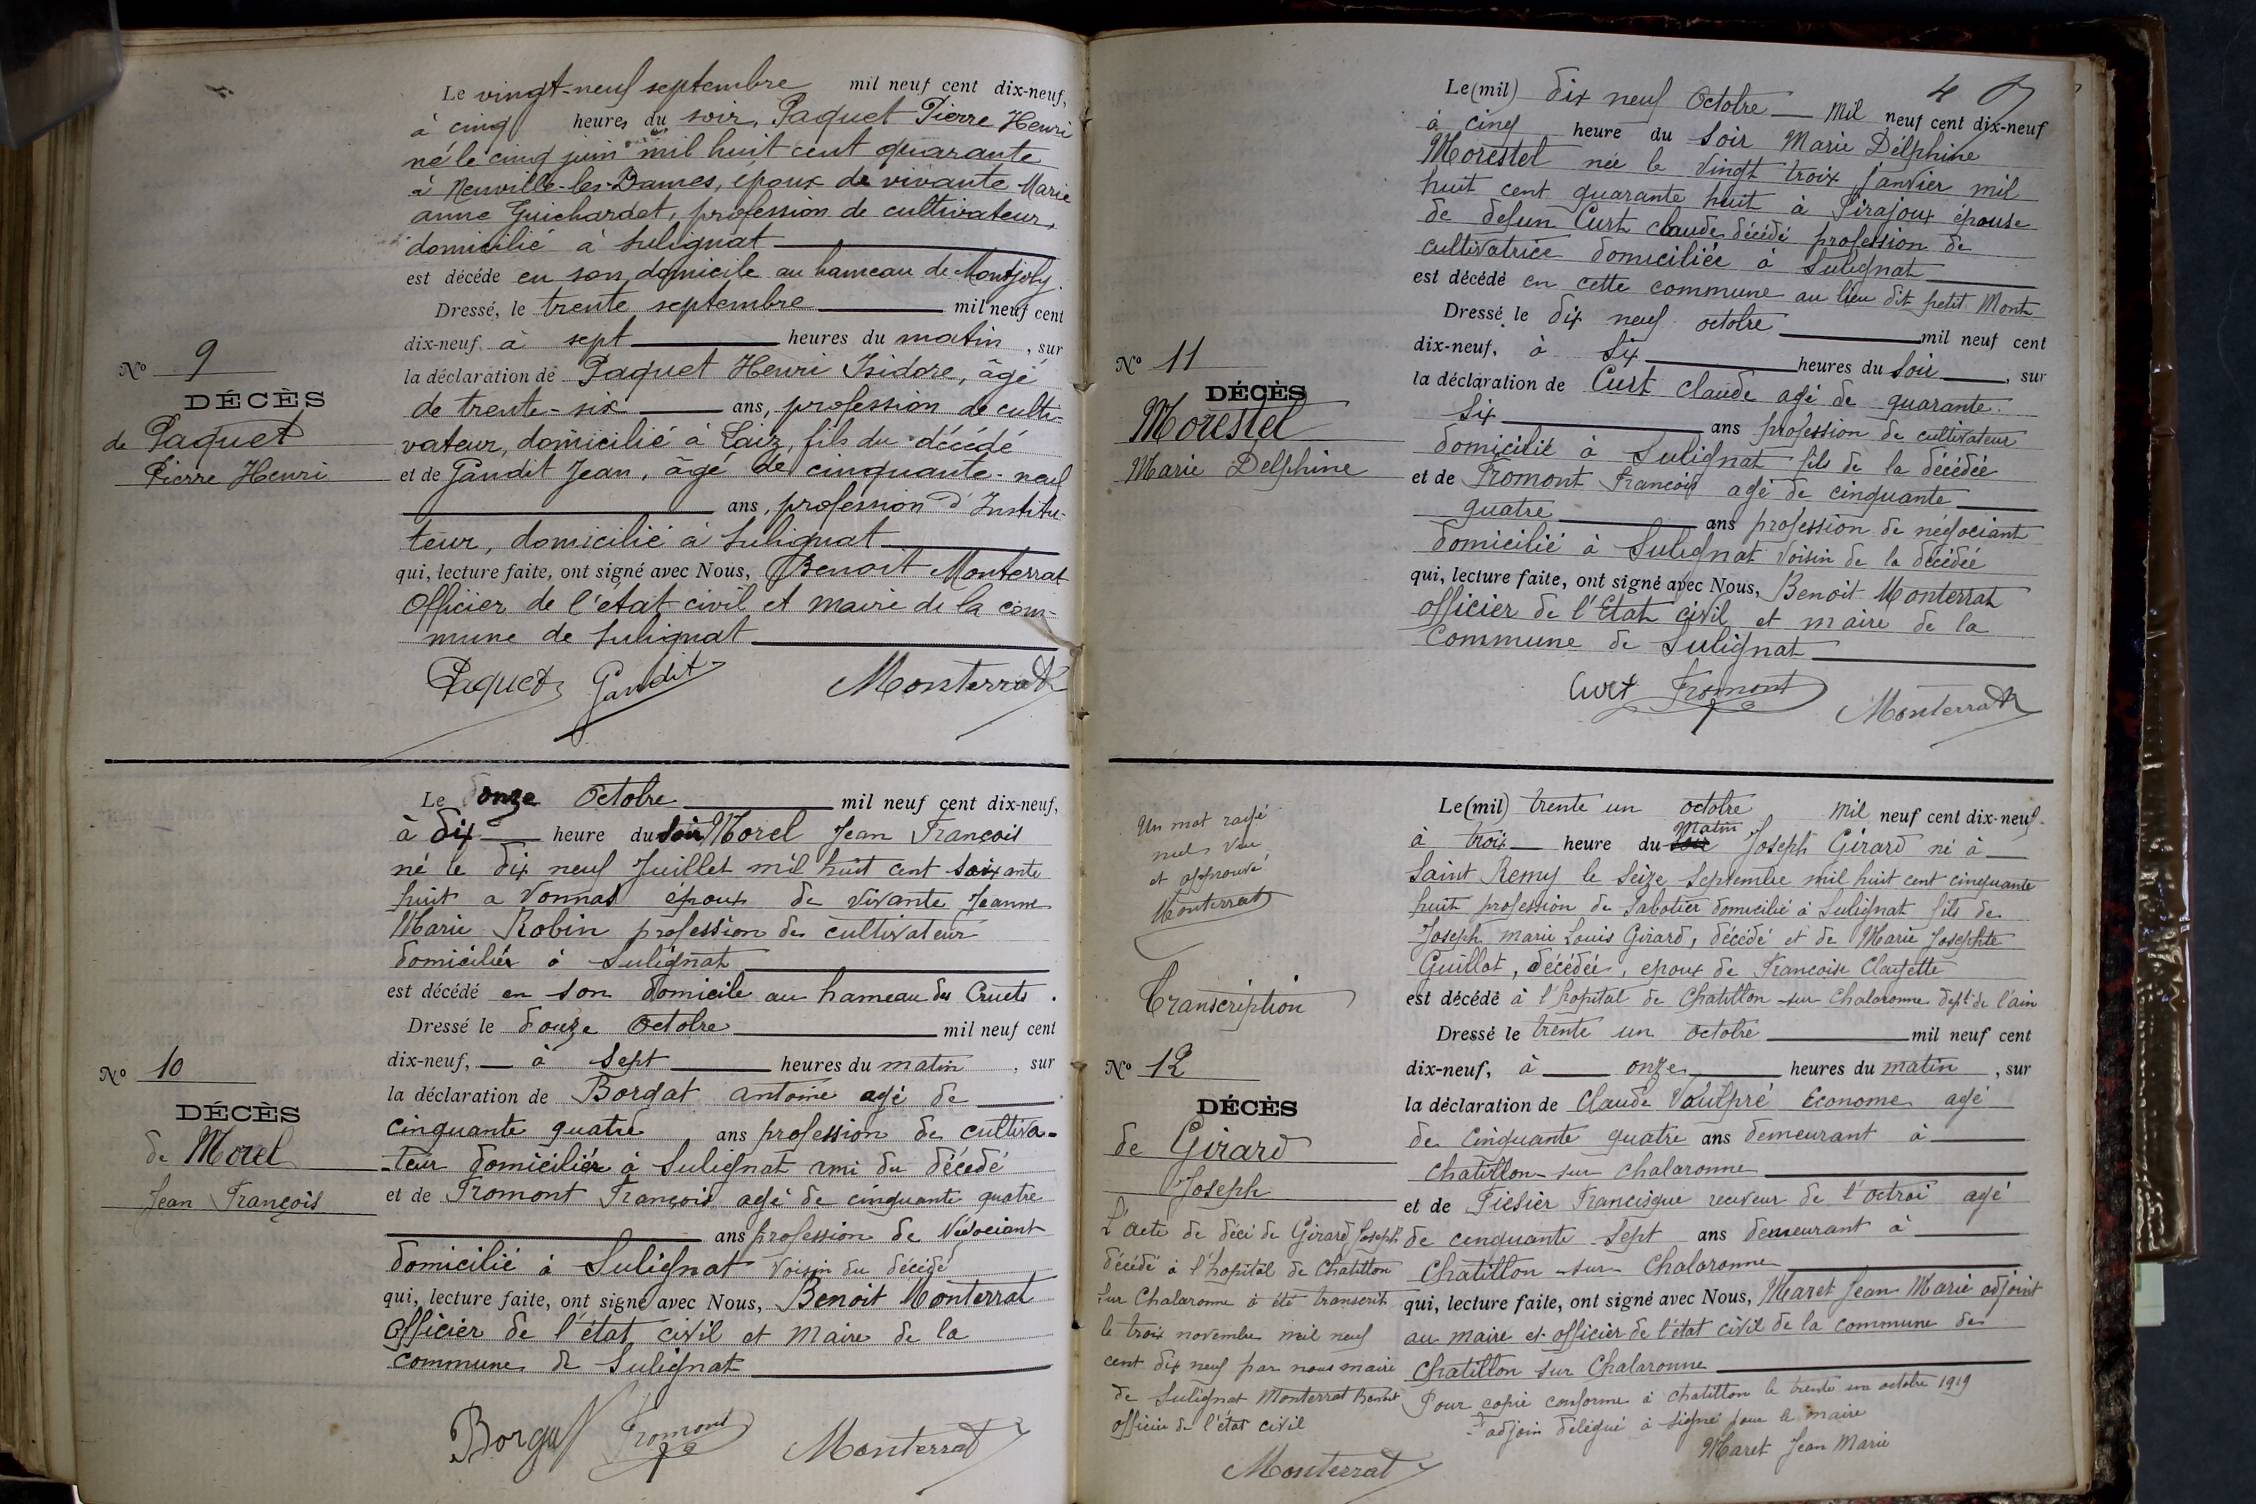 Le vingt-neuf septembre mil neuf cent dix-neuf,
à cinq heures du soir, Paquet Pierre Henri
né le cinq juin mil huit cent quarante
à Neuville-les-Dames, époux de vivante Marie
anne Guichardet, profession de cultivateur,
domicilié à Sulignat
est décédé en son domicile au hameau de Montjoly.
Dressé, le trente septembre mil neuf cent
dix-neuf à sept heures du matin, sur
la déclaration de Paquet Henri Isidore, âgé
de trente-six ans, profession de culti-
vateur, domicilié à Laiz, fils du décédé
et de Gandit Jean, âgé de cinquante-neuf
ans, profession d'Institu-
teur, domicilié à Sulignat
qui, lecture faite, ont signé avec Nous, Benoit Monterrat
Officier de l'état civil et maire de la com-
mune de Sulignat
Paquet Gandit Monterrat
N° 9
DÉCÈS
de Paquet
Pierre Henri
Le douze Octobre mil neuf cent dix-neuf,
à dix heure du soir Morel Jean François
né le dix neuf Juillet mil huit cent soixante
huit a Vonnas époux de vivante Jeanne
Marie Robin profession de cultivateur
domiciliér à Sulignat
est décédé en son domicile au hameau des Cruets.
Dressé le douze Octobre mil neuf cent
dix-neuf, à sept heures du matin, sur
la déclaration de Borgat antoine agé de
cinquante quatre ans profession de cultiva-
-teur domiciliér à Sulignat ami du décédé
et de Fromont François agé de cinquante quatre
ans profession de Négociant
domicilié à Sulignat voisin du décédé
qui, lecture faite, ont signé avec Nous, Benoit Monterrat
Officier de l'état civil et Maire de la
commune de Sulignat
Borgat Fromont Monterrat
N° 10
DÉCÈS
de Morel
Jean François
4
Le (mil) dix neuf Octobre mil neuf cent dix-neuf
à cinq heure du soir Marie Délphine
Morestel née le vingt troix janvier mil
huit cent quarante huit à Pirajoux épouse
de defun Curt claude décédé profession de
cultivatrice domiciliée à Sulignat
est décédé en cette commune au lieu dit petit Mont
Dressé le dix neuf octobre mil neuf cent
dix-neuf, à six heures du soir, sur
la déclaration de Curt Claude agé de quarante
six ans profession de cultivateur
domicilié à Sulignat fils de la décédée
et de Fromont François agé de cinquante
quatre ans profession de négociant
domicilié à Sulignat voisin de la décédée
qui, lecture faite, ont signé avec Nous, Benoit Monterrat
officier de l'Etat civil et maire de la
Commune de Sulignat
Curt Fromont Monterrat
N° 11
DÉCÈS
Morestel
Marie Delphine
Le (mil) trente un octobre mil neuf cent dix-neuf
à trois heure du soir Matin Joseph Girard né à
Saint Remy le seize Septembre mil huit cent cinquante
huit profession de Sabotier domicilié à Sulignat fils de
Joseph marie Louis Girard, décédé et de Marie Josephte
Guillot, décédée, epoux de Francoise Clayette
est décédé à l'hopital de Chatillon-sur-Chalaronne dept de l'ain
Dressé le trente un octobre mil neuf cent
dix-neuf, à onze heures du matin, sur
la déclaration de Claude Vaulpré Econome agé
de cinquante quatre ans demeurant à
chatillon-sur chalaronne
et de Fielier Francisque receveur de l'octroi agé
de cinquante sept ans demeurant à
Chatillon-sur-Chalaronne
qui, lecture faite, ont signé avec Nous, Maret Jean Marie adjoint
au maire et officier de l'état civil de la commune de
Chatillon sur Chalaronne
Pour copie conforme à chatillon le trente un octobre 1919
adjoin délégué à signé pour le maire
Maret Jean Marie
Un mot rayé
nul Vu
et approuvé
Monterrat
Transcription
N° 12
DÉCÈS
de Girard
Joseph
L'acte de décé de Girard Joseph
décédé à l'hopital de Chatillon
sur Chalaronne à été transcrit
le troix novembre mil neuf
cent dix neuf par nous maire
de Sulignat Monterrat Benoit
officier de l'état civil
Monterrat